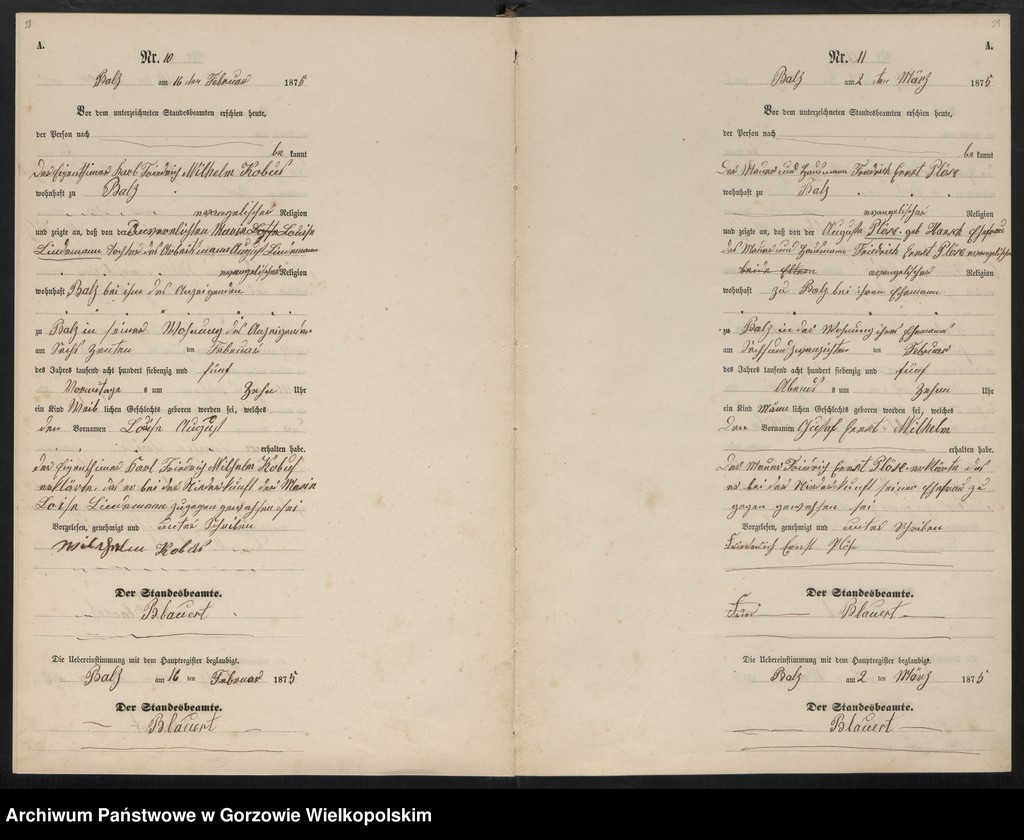 A.
Nr. 10
Balz am 16 ten Februar 1875
Vor dem unterzeichneten Standesbeamten erschien heute,
der Person nach
be kannt
Der Eigenthümer Karl Friedrich Wilhelm Kobus
wohnhaft zu Balz
evangelischer Religion
und zeigte an, daß von der Unverehlichten Maria Louise
Lindemann Tochter des Arbeitsmann August Lindemann
evangelischer Religion
wohnhaft Balz bei ihm des Anzeigenden
zu Balz in seiner Wohnung des Anzeigenden
am Sechszenten ten Februar
des Jahres tausend acht hundert siebenzig und fünf
Vormittags um Zehn Uhr
ein Kind Weib lichen Geschlechts geboren worden sei, welches
den Vornamen Louise
erhalten habe.
der Eigenthümer Karl Friedrich Wilhelm Kobus
erklärte das er bei der Niederkunft der Marie
Loise Lindemann zugegen gewesen sei
Vorgelesen, genehmigt und unter Schrieben
Wilhelm
Der Standesbeamte.
Blauert
Die Uebereinstimmung mit dem Hauptregister beglaubigt.
Balz am 16 ten Februar 1875
Der Standesbeamte.
Blauert
A.
Nr. 11
Balz am 2 ten März 1875
Vor dem unterzeichneten Standesbeamten erschien heute,
der Person nach
be kannt
Der Maurer und Hausmann Friedrich Ernst Plöse
wohnhaft zu Balz
evangelischer Religion
und zeigte an, daß von der Auguste Plöse geb Ehefrau
des Maurer und Hausmann Friedrich Ernst Plöse evangelischer
beide Eltern evangelischer Religion
wohnhaft zu Balz bei ihren Ehemann
zu Balz in der Wohnung ihres Ehemanns
am Sechsundzwanzichsten ten Februar
des Jahres tausend acht hundert siebenzig und fünf
Abends um Zehn Uhr
ein Kind Männ lichen Geschlechts geboren worden sei, welches
Den Vornamen Gustaf Ernst Wilhelm
erhalten habe.
Der Maurer Friedrich Ernst Plöse erklärte das
er bei der Niederkunft seiner Ehefrau zu
gegen gewesen sei
Vorgelesen, genehmigt und unter Schrieben
Friederich Ernst Plöse
Der Standesbeamte.
Blauert
Die Uebereinstimmung mit dem Hauptregister beglaubigt.
Balz am 2 ten März 1875
Der Standesbeamte.
Blauert
Archiwum Państwowe w Gorzowie Wielkopolskim